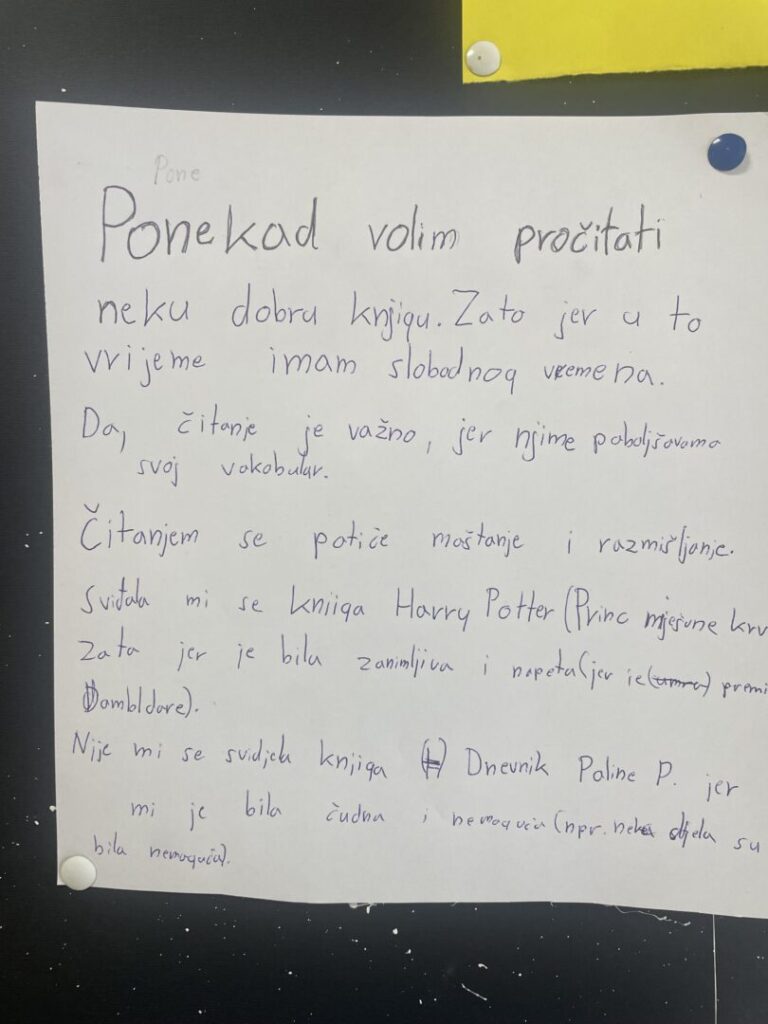 Pone
Ponekad volim pročitati
neku dobru knjigu. Zato jer u to
vrijeme imam slobodnog vremena.
Da, čitanje je važno, jer njime poboljšavamo
svoj vokobular.
Čitanjem se potiče maštanje i razmišljanje.
Sviđala mi se knjiga Harry Potter (Princ mješane krv
Zato jer je bila zanimljiva i napeta (jer je (umro) premi
Dambldore).
Nije mi se svidjela knjiga Dnevnik Paline P. jer
mi je bila čudna i nemoguća (npr. neka djela su
bila nemoguća).